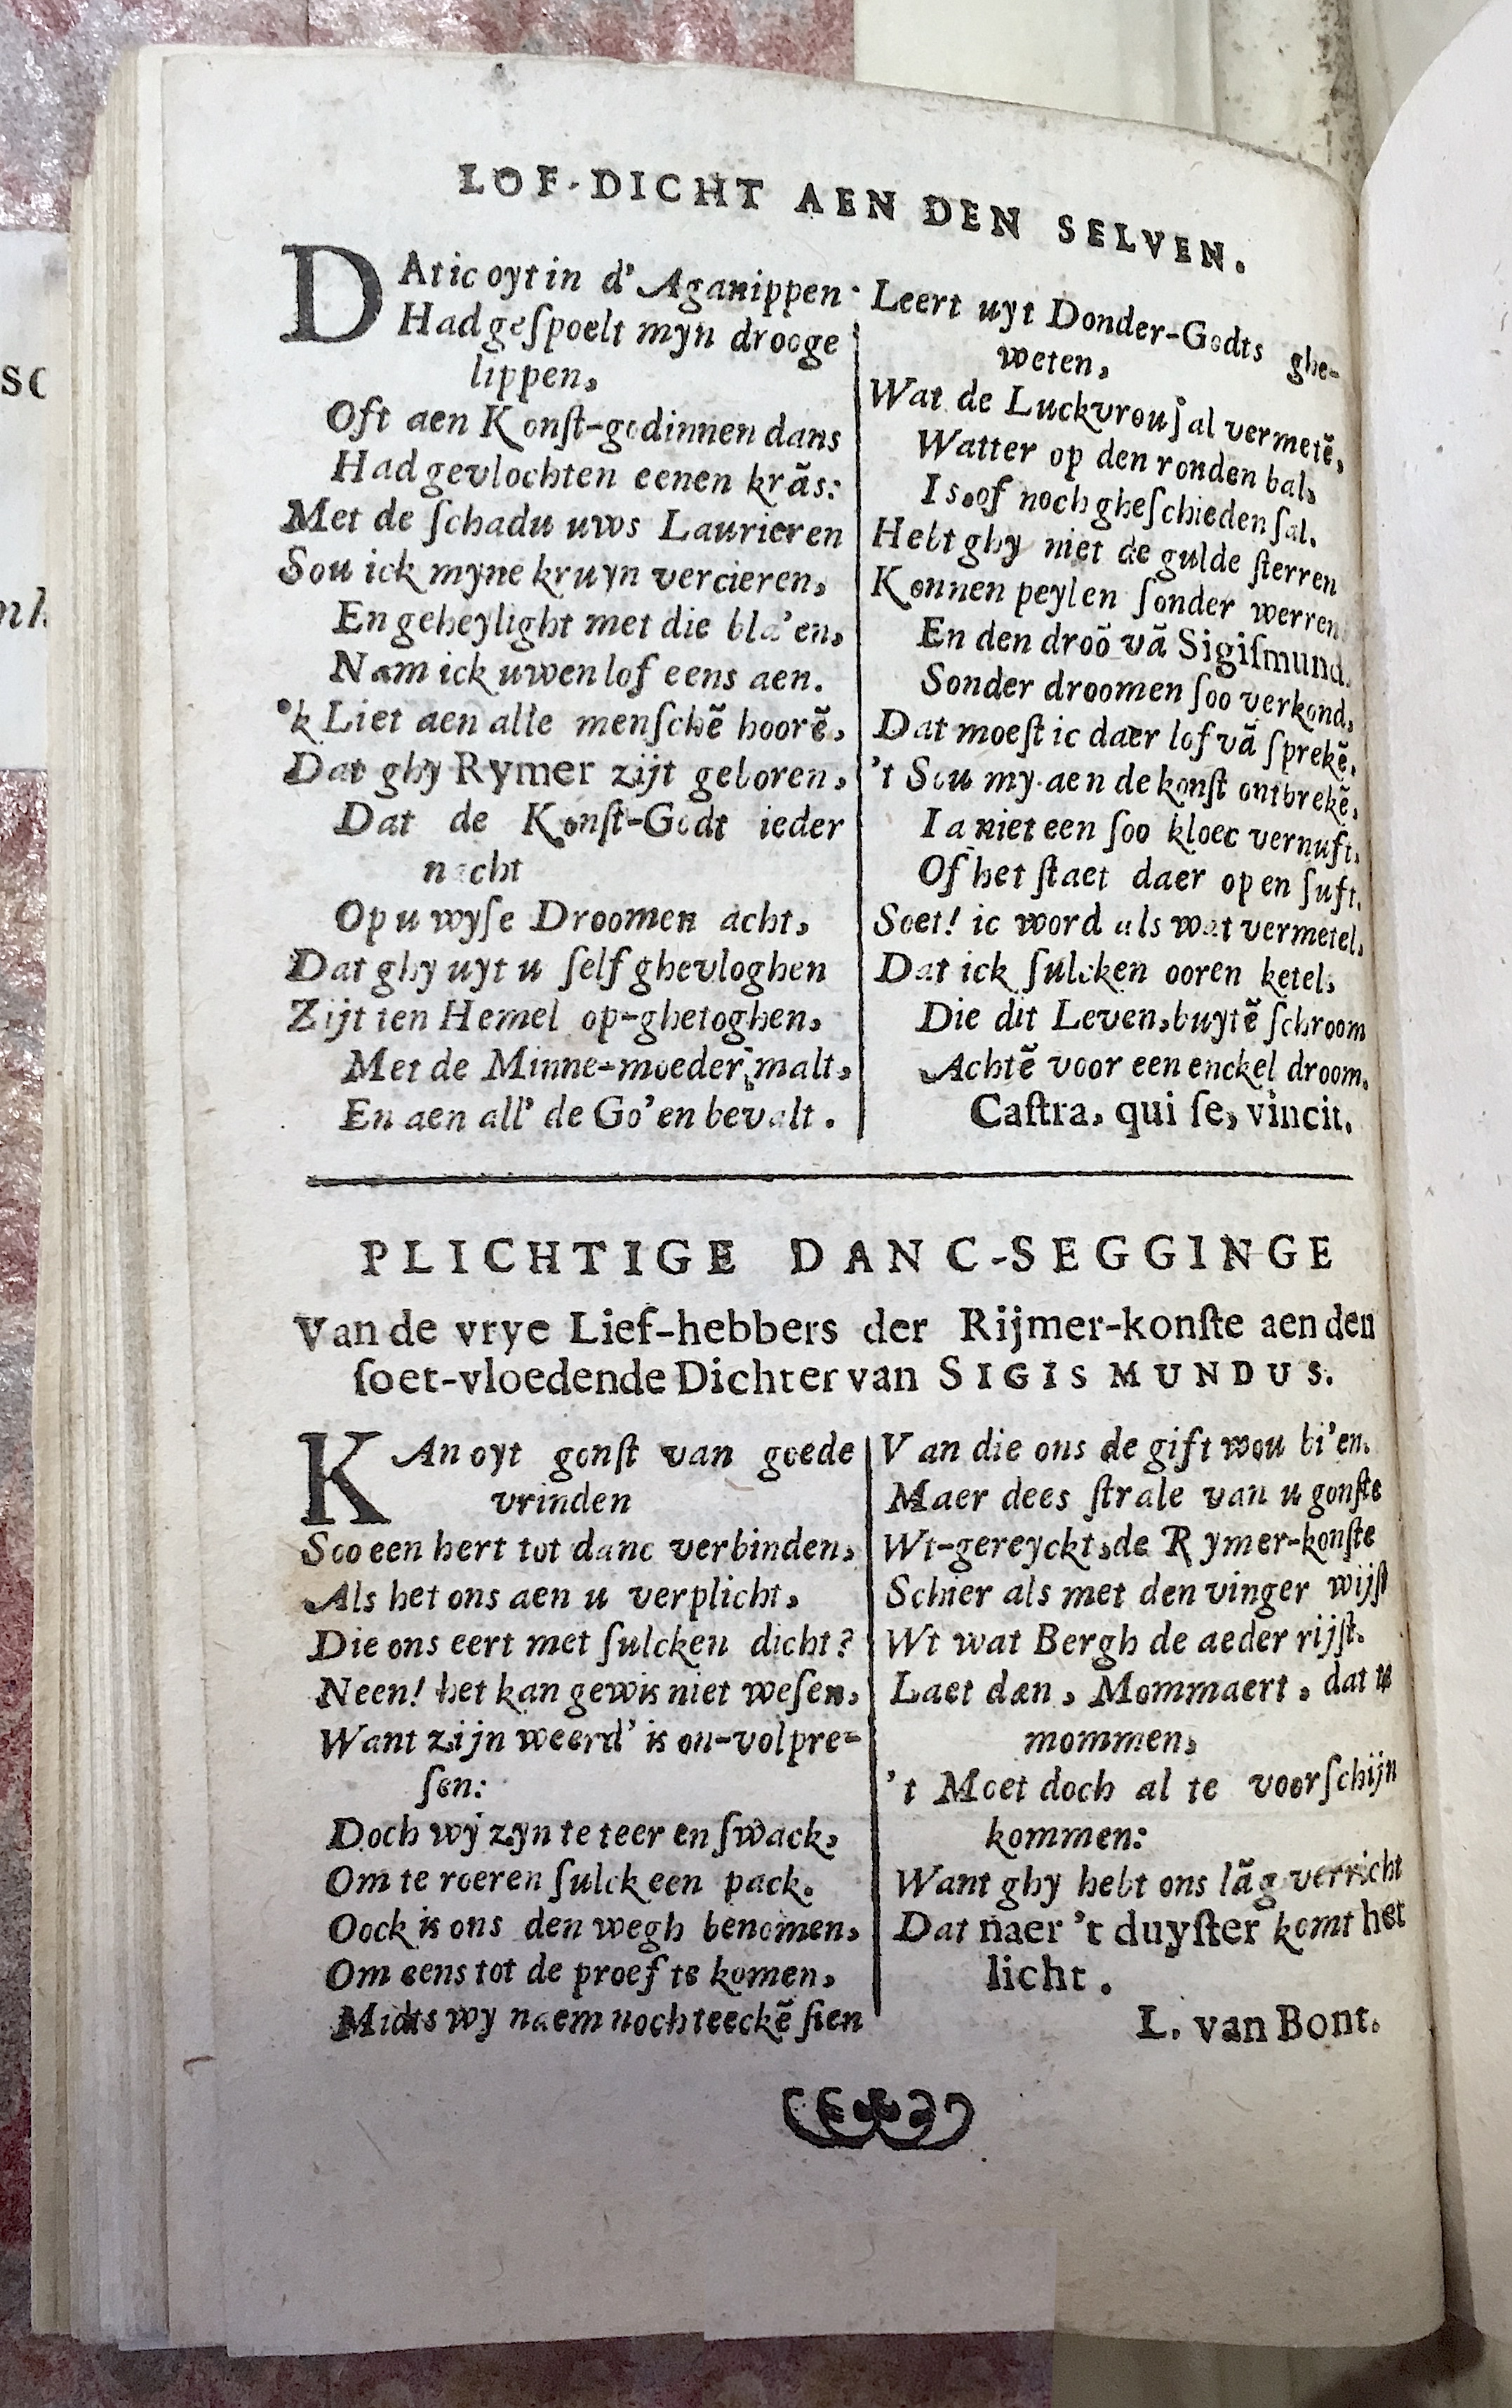 LOF-DICHT AEN DEN SELVEN.
DAt ic oyt in d'Aganippen
Had geſpoelt myn drooge
lippen,
Oft aen Konſt-godinnen dans
Had gevlochten eenen krãs:
Met de ſchadu uws Laurieren
Sou ick myne kruyn vercieren,
En geheylight met die bla'en,
Nam ick uwen lof eens aen.
'k Liet aen alle menſchẽ hoorẽ,
Dat ghy Rymer zijt geboren,
Dat de Konſt-Godt ieder
nacht
Op u wyſe Droomen acht,
Dat ghy uyt u ſelf ghevloghen
Zijt ten Hemel op-ghetoghen,
Met de Minne-moeder malt,
En aen all' de Go'en bevalt.
Leert uyt Donder-Godts ghe-
weten,
Wat de Luckvrou ſal vermetẽ,
Watter op den ronden bal,
Is, of noch gheſchieden ſal.
Hebt ghy niet de gulde ſterren
Konnen peylen ſonder werren
En den droõ vã Sigiſmund.
Sonder droomen ſoo verkond,
Dat moeſt ic daer lof vã ſprekẽ,
't Sou my aen de konſt ontbrekẽ,
Ia niet een ſoo kloec vernuft,
Of het ſtaet daer op en ſuft.
Soet! ic word als wat vermetel,
Dat ick ſulcken ooren ketel,
Die dit Leven, buytẽ ſchroom
Achtẽ voor een enckel droom.
Caſtra, qui ſe, vincit.
PLICHTIGE DANC-SEGGINGE
Van de vrye Lief-hebbers der Rijmer-konſte aen den
ſoet-vloedende Dichter van SIGISMUNDUS.
KAn oyt gonſt van goede
vrinden
Soo een hert tot danc verbinden,
Als het ons aen u verplicht,
Die ons eert met ſulcken dicht?
Neen! het kan gewis niet weſen,
Want zijn weerd' is on-volpre-
ſen:
Doch wy zyn te teer en ſwack,
Om te roeren ſulck een pack.
Oock is ons den wegh benomen,
Om eens tot de proef te komen,
Midts wy naem noch teeckẽ ſien
Van die ons de gift wou bi'en.
Maer dees ſtrale van u gonſte
Wt-gereyckt, de Rymer-konſte
Schier als met den vinger wijſt
Wt wat Bergh de aeder rijſt.
Laet dan, Mommaert, dat u
mommen,
't Moet doch al te voorſchijn
kommen:
Want ghy hebt ons lãg verricht
Dat naer 't duyſter komt het
licht.
L. van Bont.